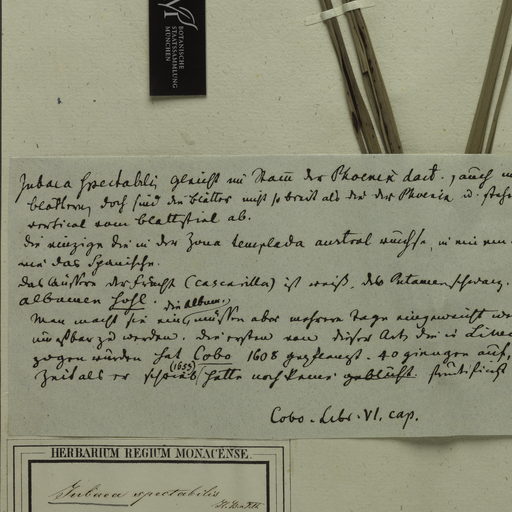 BOTANISCHE
STAATSSAMMLUNG
MÜNCHEN
Jubaea spectabilis gleicht im Stam̄ der Phoenix dact., auch
blättern, doch sind die blätter nicht so breit als die der Phoenix u.
vertical vom blattstiel ab.
die einzige die in der Zona templada austral wächst, in
wie das Spanische.
das Äussere der Frucht (cascarilla) ist weiß, das Putamen schwarz.
albumen hohl. die album.,
Man macht sie ein, müssen aber mehrere Tage eingeweicht
um eßbar zu werden. die ersten von dieser Art die in Lima
gezogen wurden hat Cobo 1608 gepflanzt. 40 giengen auf,
Zeit als er schrieb (1653) hatte noch keine geblüht.
Cobo. Libr. VI, cap.
HERBARIUM REGIUM MONACENSE.
Jubaea spectabilis